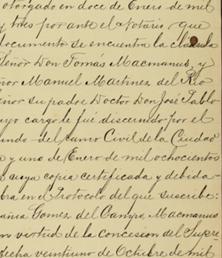 otorgado en doce de Enero de mil
y tres por ante el Notario, que
documento se encuentra la clausula
Señor Don Tomas Macmanus, y
ñor Manuel Martinez del Rio
ñor su padre Doctor Don José Pablo
cuyo cargo le fué discernido por el
ndo del ramo Civil de la Ciudad
y uno de Enero de mil ochocientos
cuya copia certificada y debida
bra en el Protocolo del que suscribe:
ania Gomez del Campo Macmanus
n virtud de la Concesion del Supre
fecha veintiuno de Octubre de mil